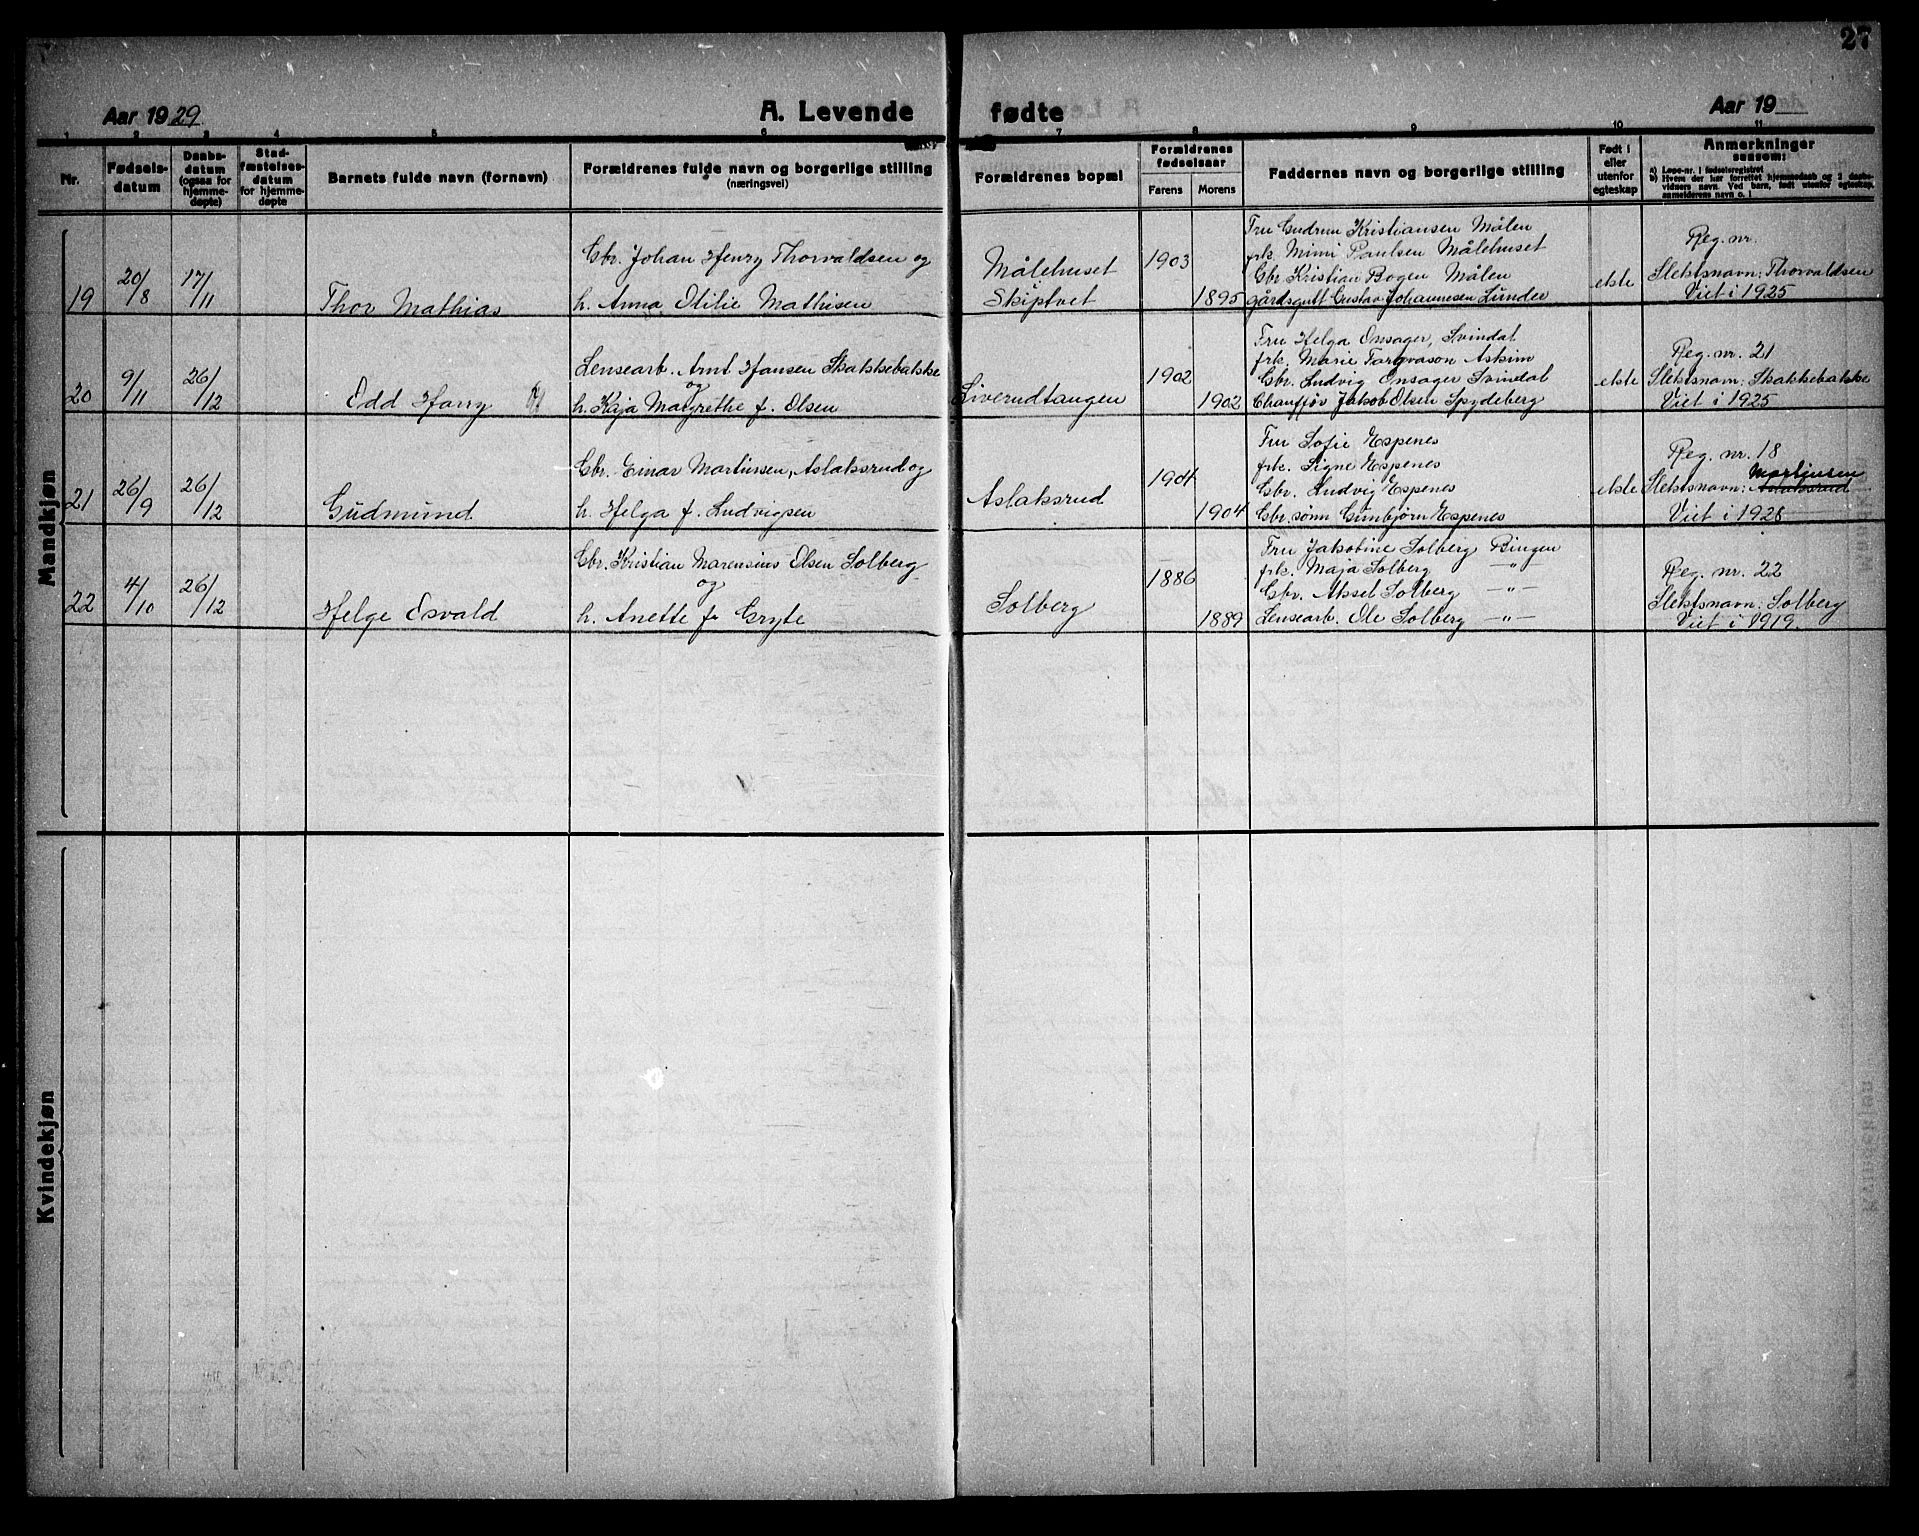 27
Aar 1929
A. Levende
fødte
Aar 19
1 2 3 4 5 6 7 8 9 10 11
Nr.
Fødsels-
datum
Daabs-
datum
(ogsaa for
hjemme-
døpte)
Stad-
fæstelses-
datum
for hjemme-
døpte
Barnets fulde navn (fornavn)
Forældrenes fulde navn og borgerlige stilling
(næringsvei)
Forældrenes bopæl
Forældrenes
fødselsaar
Farens Morens
Faddernes navn og borgerlige stilling
Født i
eller
utenfor
egteskap
Anmerkninger
saasom:
a) Løpe-nr. i fødselsregistret
b) Hvem der har forrettet hjemmedaab og 2 daabs-
vidners navn. Ved barn, født utenfor egteskap,
anmelderens navn o. l
Mandkjøn
19
20/8
17/11
Thor Mathias
Gbr. Johan Henry Thorvaldsen og
h. Anna Otilie Mathisen
Målehuset
Skiptvet
1903
1895
Fru Gudrun Kristiansen Målen
frk. Mimi Paulsen Målehuset
Gbr Kristian Bogen Målen
gårdsgutt Gustav Johannesen Lunder
ekte
Reg. nr.
Slektsnavn: Thorvaldsen
Viet i 1925
20
9/11
26/12
Odd Harry
Lensearb. Arnt Hansen Skakkebakke
og
h. Kaja Margrethe f. Olsen
Siverudtangen
1902
1902
Fru Helga Onsager, Svindal
frk. Marie Torgvason Askim
Gbr. Ludvig Onsager Svindal
Chauffør Jakob Olsen Spydeberg
ekte
Reg. nr. 21
Slektsnavn: Skakkebakke
Viet i 1925
21
26/9
26/12
Gudmund
Gbr. Einar Martinsen, Aslaksrud og
h. Helga f. Ludvigsen
Aslaksrud
1904
1904
Fru Sofie Espenes
frk. Signe Espenes
Gbr. Ludvig Espenes
Gbr.sønn Gunbjørn Espenes
ekte
Reg. nr. 18
Martinsen
Slektsnavn: Aslaksrud
Viet i 1928
22
4/10
26/12
Helge Esvald
Gbr. Kristian Marensius Olsen Solberg
og
h. Anette f. Gryte
Solberg
1886
1889
Fru Jakobine Solberg Bingen
frk. Maja Solberg —"—
Gbr. Aksel Solberg —"—
Lensearb. Ole Solberg —"—
Reg. nr. 22
Slektsnavn: Solberg
Viet i 1919.
Kvindekjøn